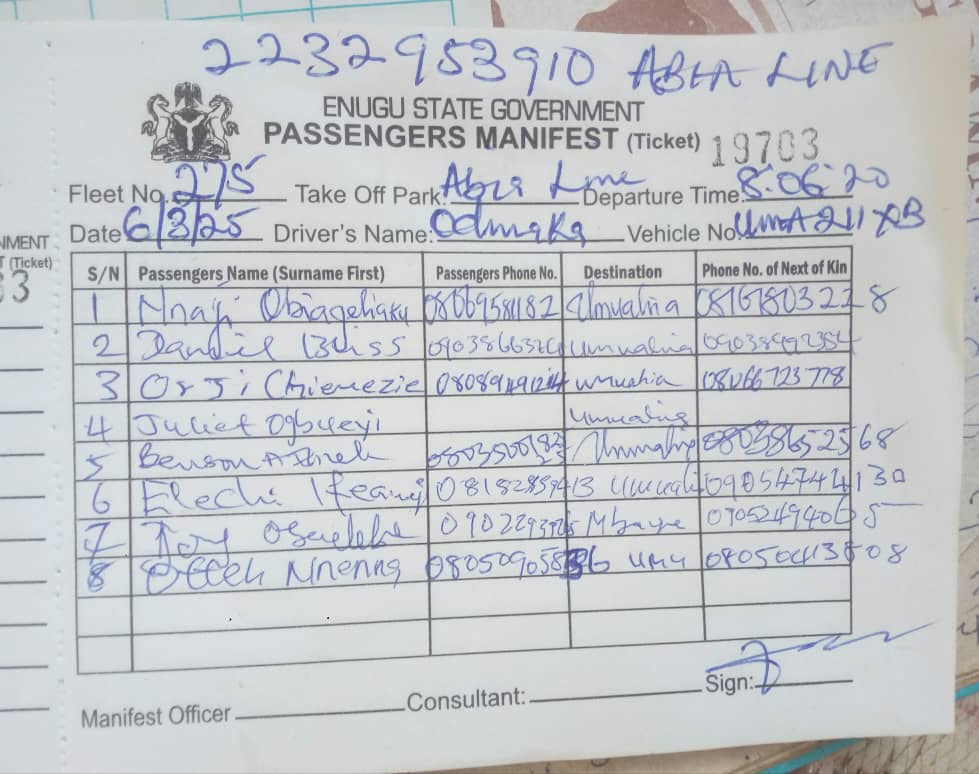 2232953910 ABIA LINE
ENUGU STATE GOVERNMENT
PASSENGERS MANIFEST (Ticket) 19703
Fleet No. 275 Take Off Park: Abia Line Departure Time: 8:06:20
Date 6/3/25 Driver's Name: Odinaka Vehicle No. UMA 211 XB
NMENT
T (Ticket)
3
S/N Passengers Name (Surname First) Passengers Phone No. Destination Phone No. of Next of Kin
1 Nnaji Obiageliaku Umuahia
2 Daniel Bliss Umuahia
3 Orji Chiemezie Umuahia 08066723778
4 Juliet Ogbueyi Umuahia
5 Benson Umuahia 08038652568
6 Elechi Ifeanyi Umuahi 09054744130
7 Joy 07052494065
8 Nnenna Umu
Manifest Officer Consultant: Sign: